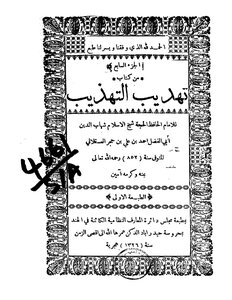 الحمد لله الذي وفقنا ويسر لنا طبع
الجزء السابع
من كتاب
تهذيب التهذيب
للامام الحافظ الحجة شيخ الاسلام شهاب الدين
أبي الفضل احمد بن علي بن حجر العسقلاني
المتوفى سنة (٨٥٢) رحمه الله تعالى
بمنه وكرمه آمين
الطبعة الاولى
بمطبعة مجلس دائرة المعارف النظامية الكائنة في الهند
بمحروسة حيدر آباد الدكن عمرها الله الى اقصى الزمن
سنة (١٣٢٦) هجرية